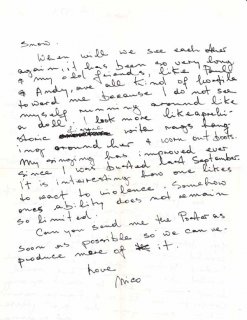 Snow.
When will we see each other
again, it has been so very long
& my old friends, like Bill
& Andy, are all kind of hostile
toward me because I do not see
myself running around like
a doll. I look more like a
stone with rags hang
ing around her & worn out boots.
My singing has improved ever
since I was busted last September.
It is interesting how one likes
to react to violence. Somehow
ones ability does not remain
so limited.
Can you send me the Poster as
soon as possible so we can re-
produce more of it.
Love
Nico